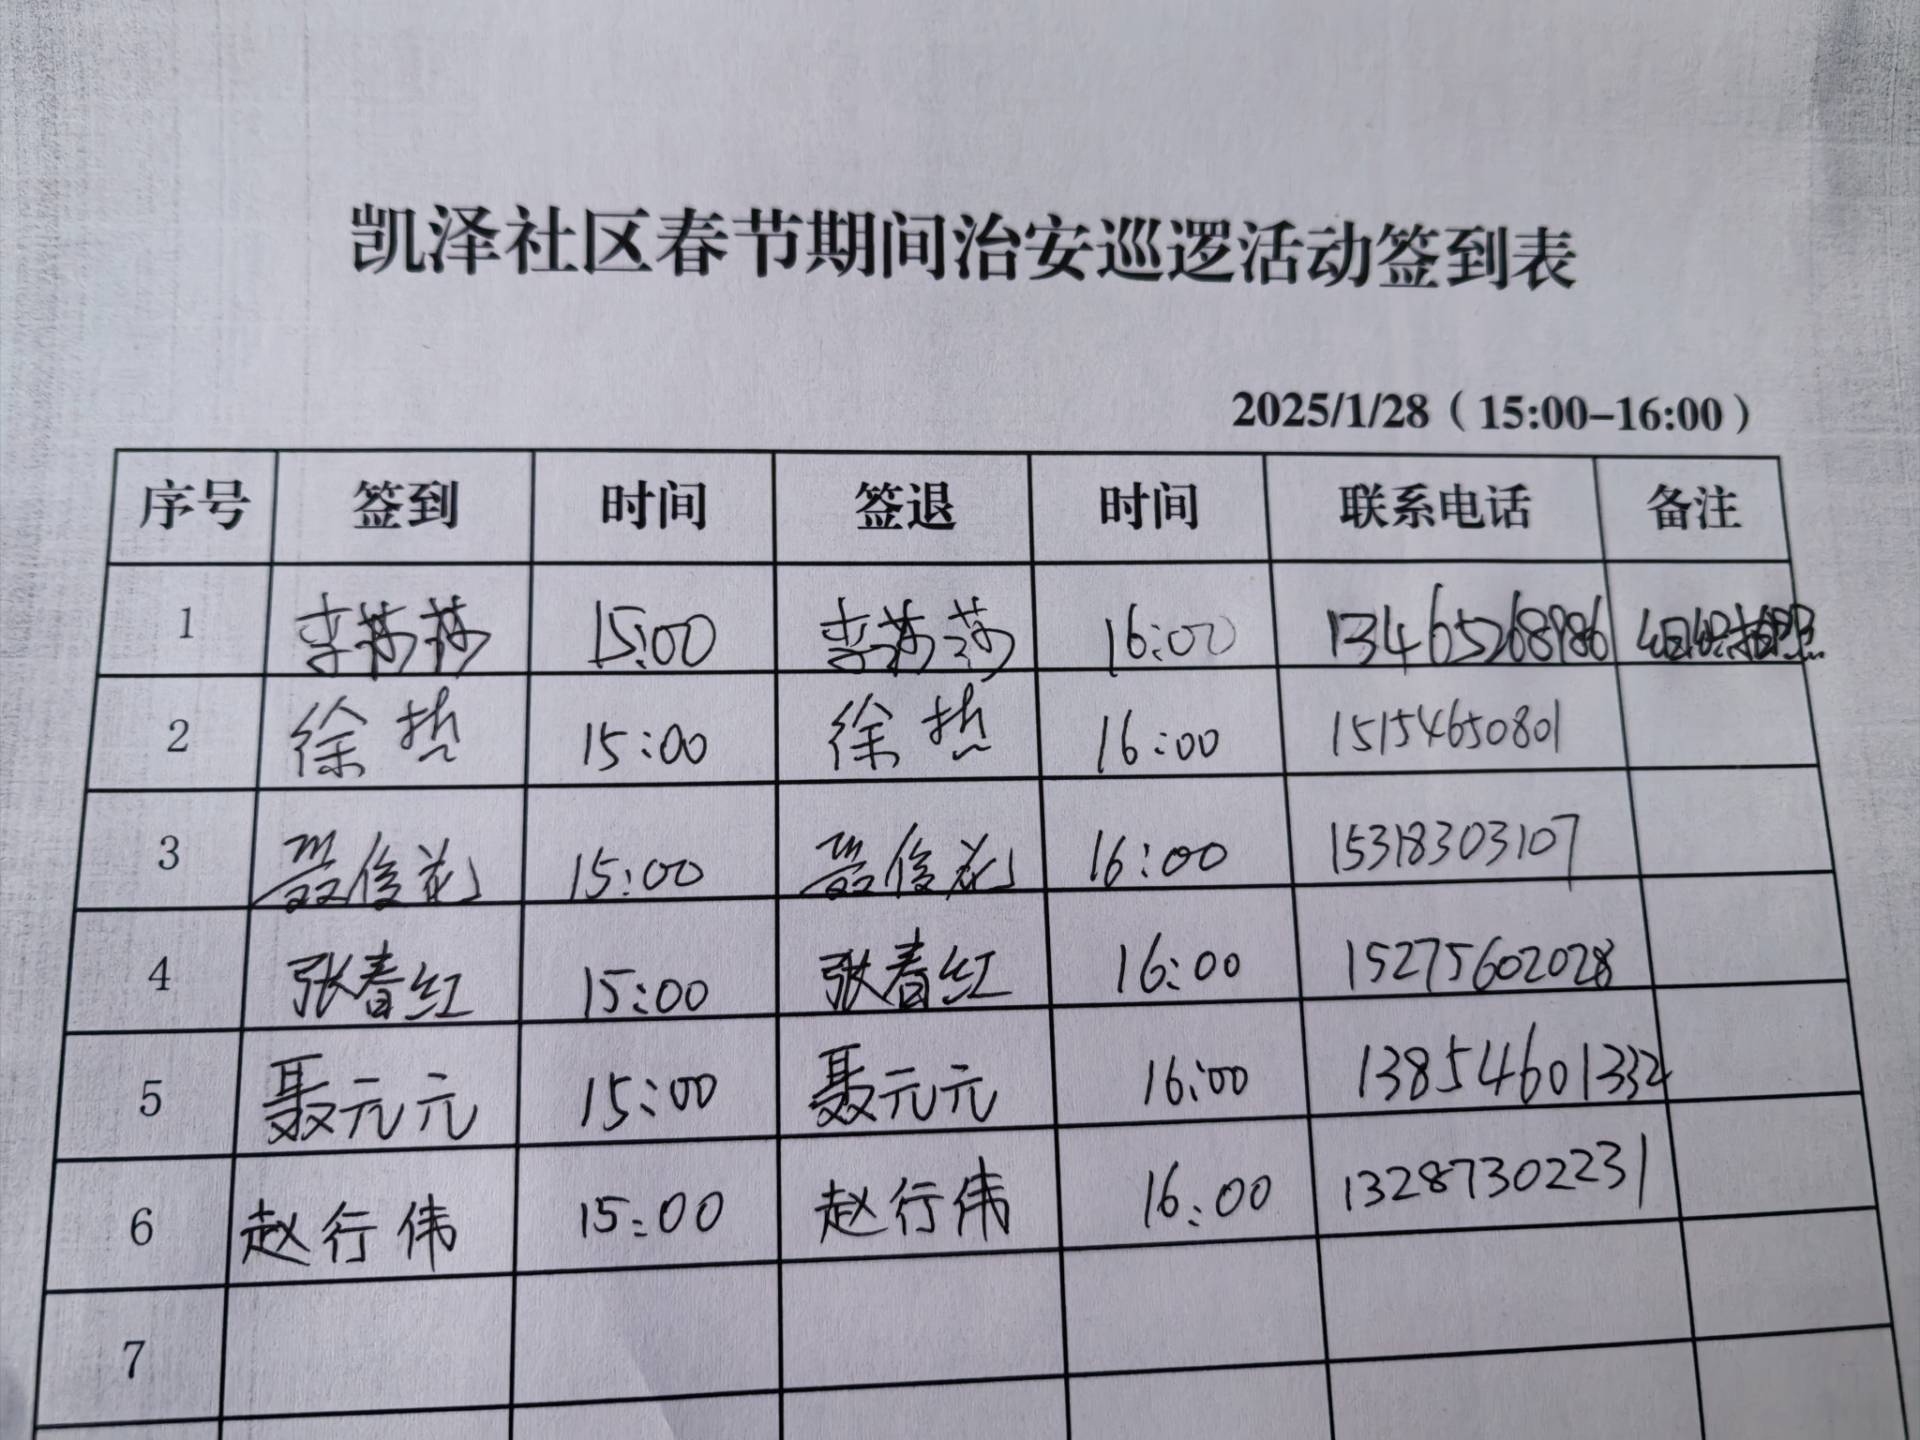 凯泽社区春节期间治安巡逻活动签到表
2025/1/28（15:00-16:00）
序号 签到 时间 签退 时间 联系电话 备注
1 李莎莎 15:00 李莎莎 16:00 13465268986
2 徐 15:00 徐 16:00 15154650801
3 聂俊 15:00 聂俊 16:00 15318303107
4 张春红 15:00 张春红 16:00 15275602028
5 聂元元 15:00 聂元元 16:00 13854601332
6 赵行伟 15:00 赵行伟 16:00 13287302231
7